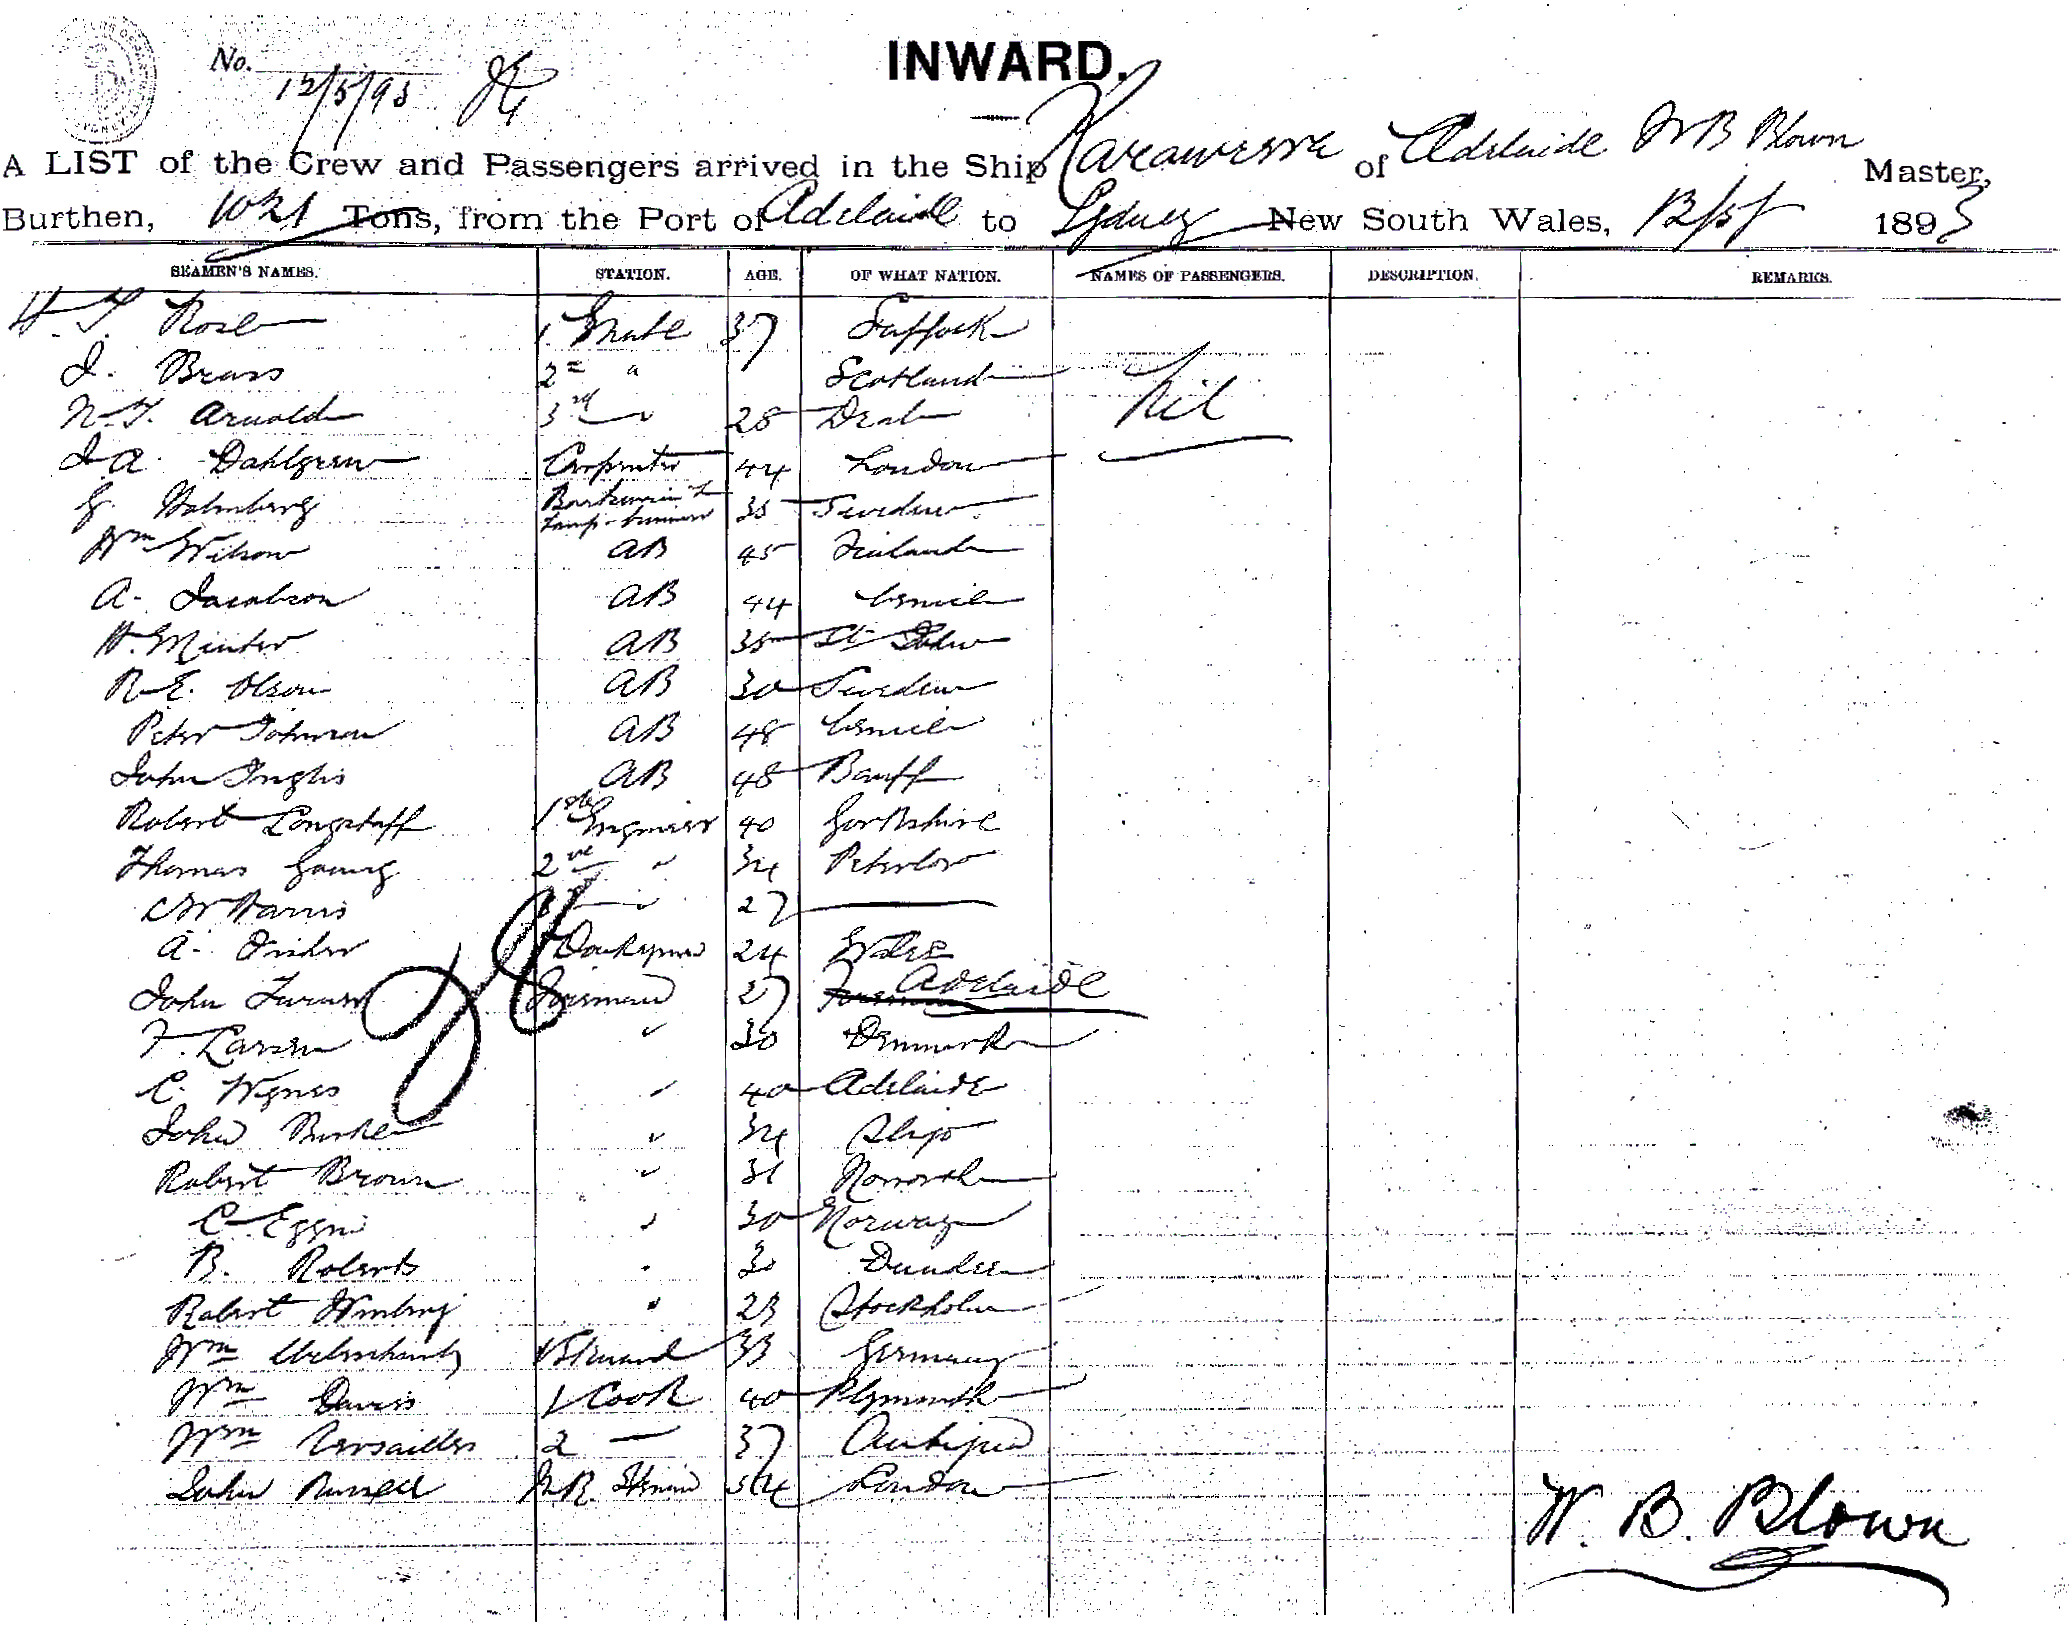 No.
12/5/93
INWARD.
A LIST of the Crew and Passengers arrived in the Ship of Adelaide W B Blown Master,
Burthen, 1021 Tons, from the Port of Adelaide to Sydney New South Wales, 12/5/ 1893
SEAMEN'S NAMES. STATION. AGE. OF WHAT NATION. NAMES OF PASSENGERS. DESCRIPTION. REMARKS.
H. T. Rose 1 Mate 37 Suffolk
J. Brass 2nd " Scotland Nil
N. T. Arnold 3rd " 28 Deal
J A. Dahlgren Carpenter 44 London
G. Holmberg 35 Sweden
Wm Wilson AB 45 Finland
A. Jacobson AB 44
H. Minter AB 35 St John
R. E. Olson AB 30 Sweden
Peter Johnson AB 48
John Inglis AB 48 Banff
Robert Longstaff 1st Engineer 40 Yorkshire
Thomas Young 2nd " 34
C W Harris " 27
A. Fisher Donkeyman 24 Wales
John Turner Fireman 27 Adelaide
F. Larsen " 30 Denmark
C. Wynes " 40 Adelaide
John Burke " 34 Sligo
Robert Brown " 31
C. Eggni " 30 Norway
B. Roberts " 30 Dundee
Robert " 23 Stockholm
Wm 1 Steward 33 Germany
Wm Davis 1 Cook 40 Plymouth
Wm Versailles 2 — 37 Antigua
John Russell 54 London
W. B. Blown